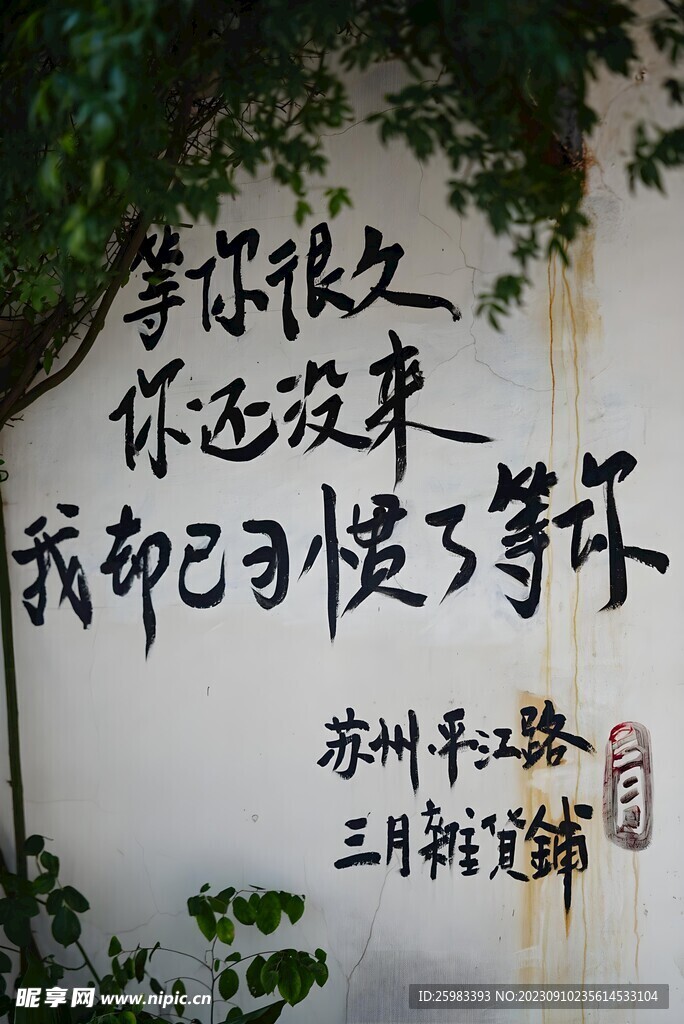 等你很久
你还没来
我却已习惯了等你
苏州平江路
三月雜貨鋪
三月
昵享网 www.nipic.cn
ID:25983393 NO:20230910235614533104